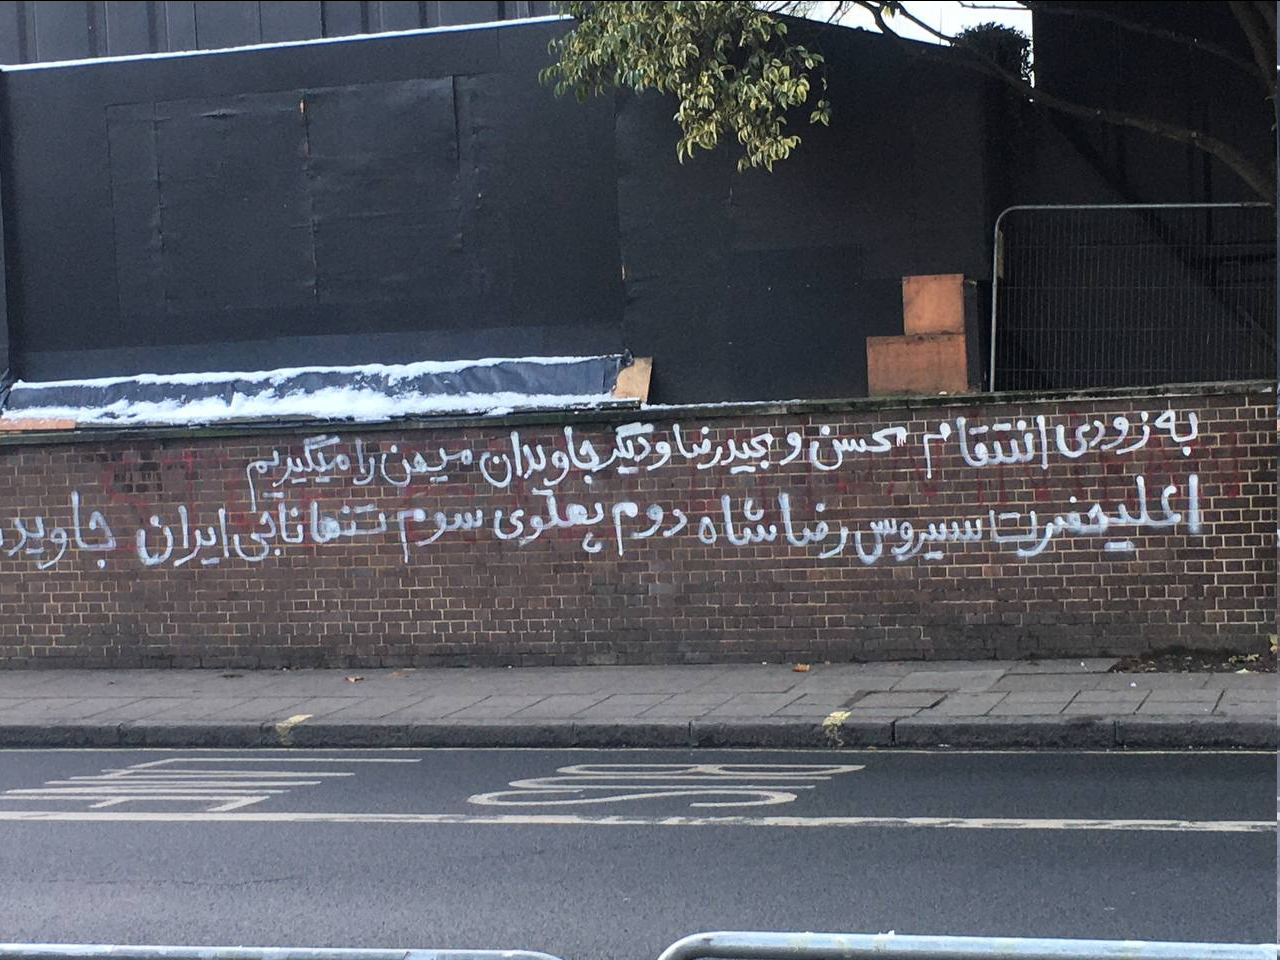 به زودی انتقام محسن و مجیدرضا و دیگر جاویدان میهن را میگیریم
اعلیحضرت سیروس رضا شاه دوم پهلوی سوم تنها ناجی ایران جاوید
BUS
LANE